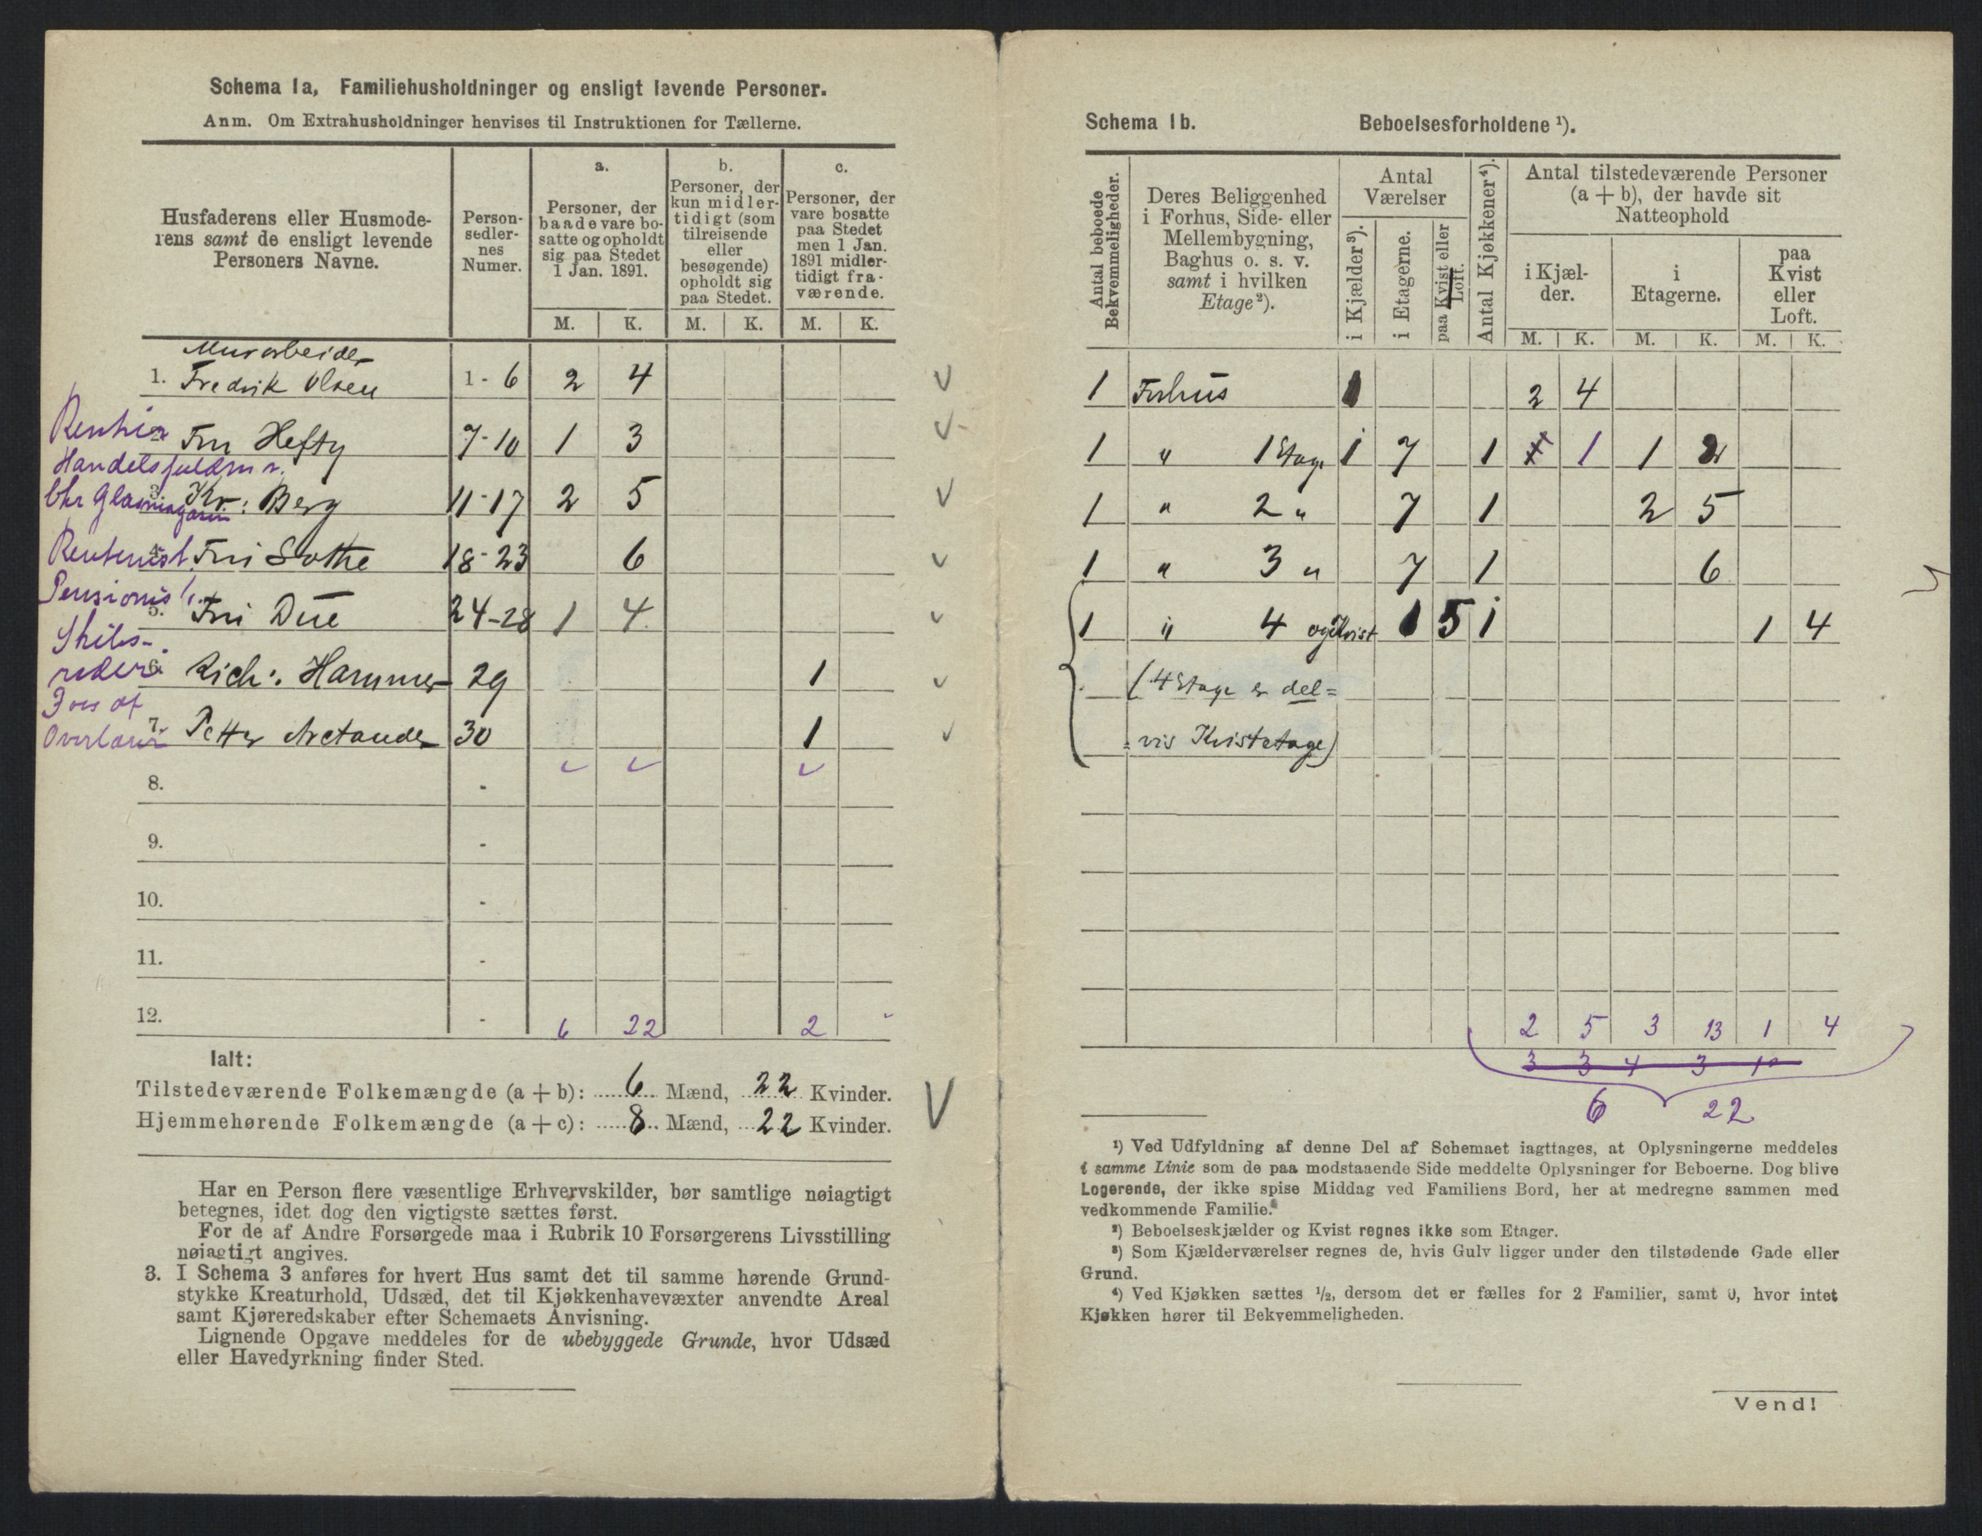 Schema 1a, Familiehusholdninger og ensligt levende Personer.
Anm. Om Extrahusholdninger henvises til Instruktionen for Tællerne.
Husfaderens eller Husmode-
rens samt de ensligt levende
Personers Navne.
Person-
sedler-
nes
Numer.
a.
Personer, der
baade vare bo-
satte og opholdt
sig paa Stedet
1 Jan. 1891.
b.
Personer, der
kun midler-
tidigt (som
tilreisende
eller
besøgende)
opholdt sig
paa Stedet.
c.
Personer, der
vare bosatte
paa Stedet
men 1 Jan.
1891 midler-
tidigt fra-
værende.
M. K. M. K. M. K.
Murarbeider
1. Fredrik Olsen 1 - 6 2 4
Rentier
2. Fru Hefty 7-10 1 3
Handelsfuldm.
3. Kr: Berg 11-17 2 5
4. Fru Sothe 18-23 6
Pensionist
5. Fru Due 24-28 1 4
Skibs-
reder
6. Rich: Hammer 29 1
Overlærer
7. Petter Arctander 30 1
8. -
9. -
10. -
11. -
12. - 6 22 2
Ialt:
Tilstedeværende Folkemængde (a + b): 6 Mænd, 22 Kvinder.
Hjemmehørende Folkemængde (a + c): 8 Mænd, 22 Kvinder.
Har en Person flere væsentlige Erhvervskilder, bør samtlige nøiagtigt
betegnes, idet dog den vigtigste sættes først.
For de af Andre Forsørgede maa i Rubrik 10 Forsørgerens Livsstilling
nøiagtigt angives.
3. I Schema 3 anføres for hvert Hus samt det til samme hørende Grund-
stykke Kreaturhold, Udsæd, det til Kjøkkenhavevæxter anvendte Areal
samt Kjøreredskaber efter Schemaets Anvisning.
Lignende Opgave meddeles for de ubebyggede Grunde, hvor Udsæd
eller Havedyrkning finder Sted.
Schema 1b. Beboelsesforholdene ¹).
Antal beboede
Bekvemmeligheder.
Deres Beliggenhed
i Forhus, Side- eller
Mellembygning,
Baghus o. s. v.
samt i hvilken
Etage²).
Antal
Værelser
i Kjælder³).
i Etagerne.
paa Kvist eller
Loft.
Antal Kjøkkener⁴).
Antal tilstedeværende Personer
(a + b), der havde sit
Natteophold
i Kjæl-
der.
i
Etagerne.
paa
Kvist
eller
Loft.
M. K. M. K. M. K.
1 Forhus 1 2 4
1 " 1 Etage 1 7 1 1 1 2
1 " 2 " 7 1 2 5
1 " 3 " 7 1 6
1 " 4 og Kvist 1 5 1 1 4
(4 Etage er del=
=vis Kvistetage)
2 5 3 13 1 4
3 3 4 3 1
6 22
¹) Ved Udfyldning af denne Del af Schemaet iagttages, at Oplysningerne meddeles
i samme Linie som de paa modstaaende Side meddelte Oplysninger for Beboerne. Dog blive
Logerende, der ikke spise Middag ved Familiens Bord, her at medregne sammen med
vedkommende Familie.
²) Beboelseskjælder og Kvist regnes ikke som Etager.
³) Som Kjælderværelser regnes de, hvis Gulv ligger under den tilstødende Gade eller
Grund.
⁴) Ved Kjøkken sættes ½, dersom det er fælles for 2 Familier, samt 0, hvor intet
Kjøkken hører til Bekvemmeligheden.
Vend!